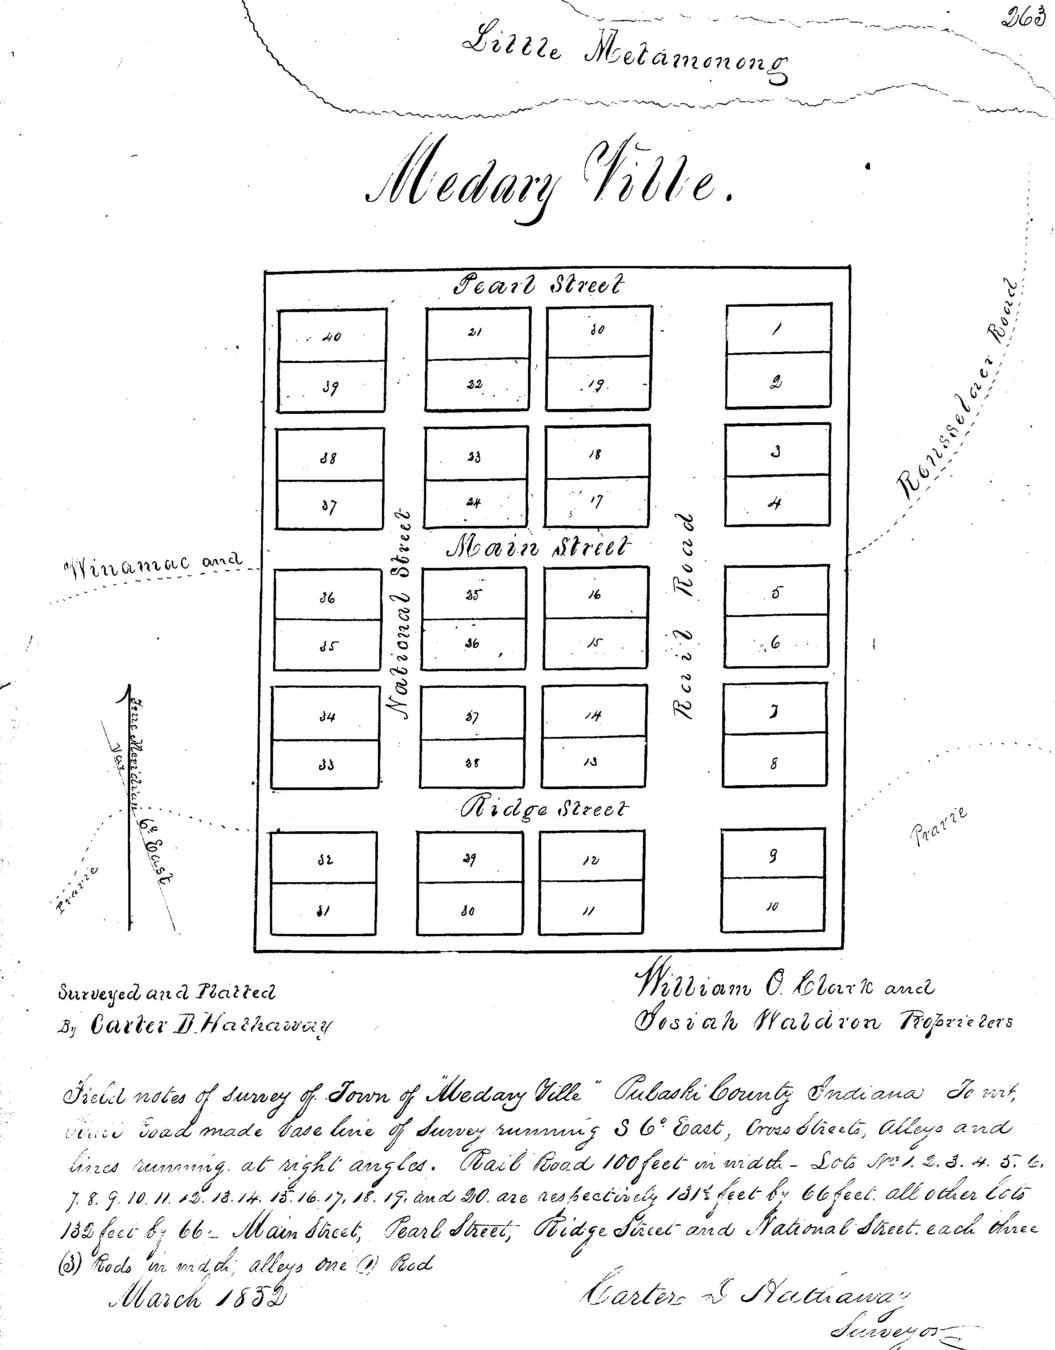 263
Little Metamonong
Medary Ville.
Pearl Street
40 21 20 1
39 22 19 2
38 23 18 3
37 24 17 4
Main Street
Winamac and
Rensselaer Road
National Street
Rail Road
36 25 16 5
35 26 15 6
34 27 14 7
33 28 13 8
Ridge Street
32 29 12 9
31 30 11 10
True Meridian
Var 6° East
Prarie
Prarie
Surveyed and Platted
By Carter D. Hathaway
William O. Clark and
Josiah Waldron Proprieters
Field notes of survey of Town of "Medary Ville" Pulaski County Indiana To wit,
Road made base line of Survey running S 6° East, Cross Streets, Alleys and
lines running at right angles. Rail Road 100 feet in width - Lots Nos 1. 2. 3. 4. 5. 6.
7. 8. 9. 10. 11. 12. 13. 14. 15. 16. 17. 18. 19. and 20. are respectively 131½ feet by 66 feet. all other lots
132 feet by 66 - Main Street, Pearl Street, Ridge Street and National Street. each three
(3) Rods in width; alleys one (1) Rod
March 1852
Carter D Hathaway
Surveyor